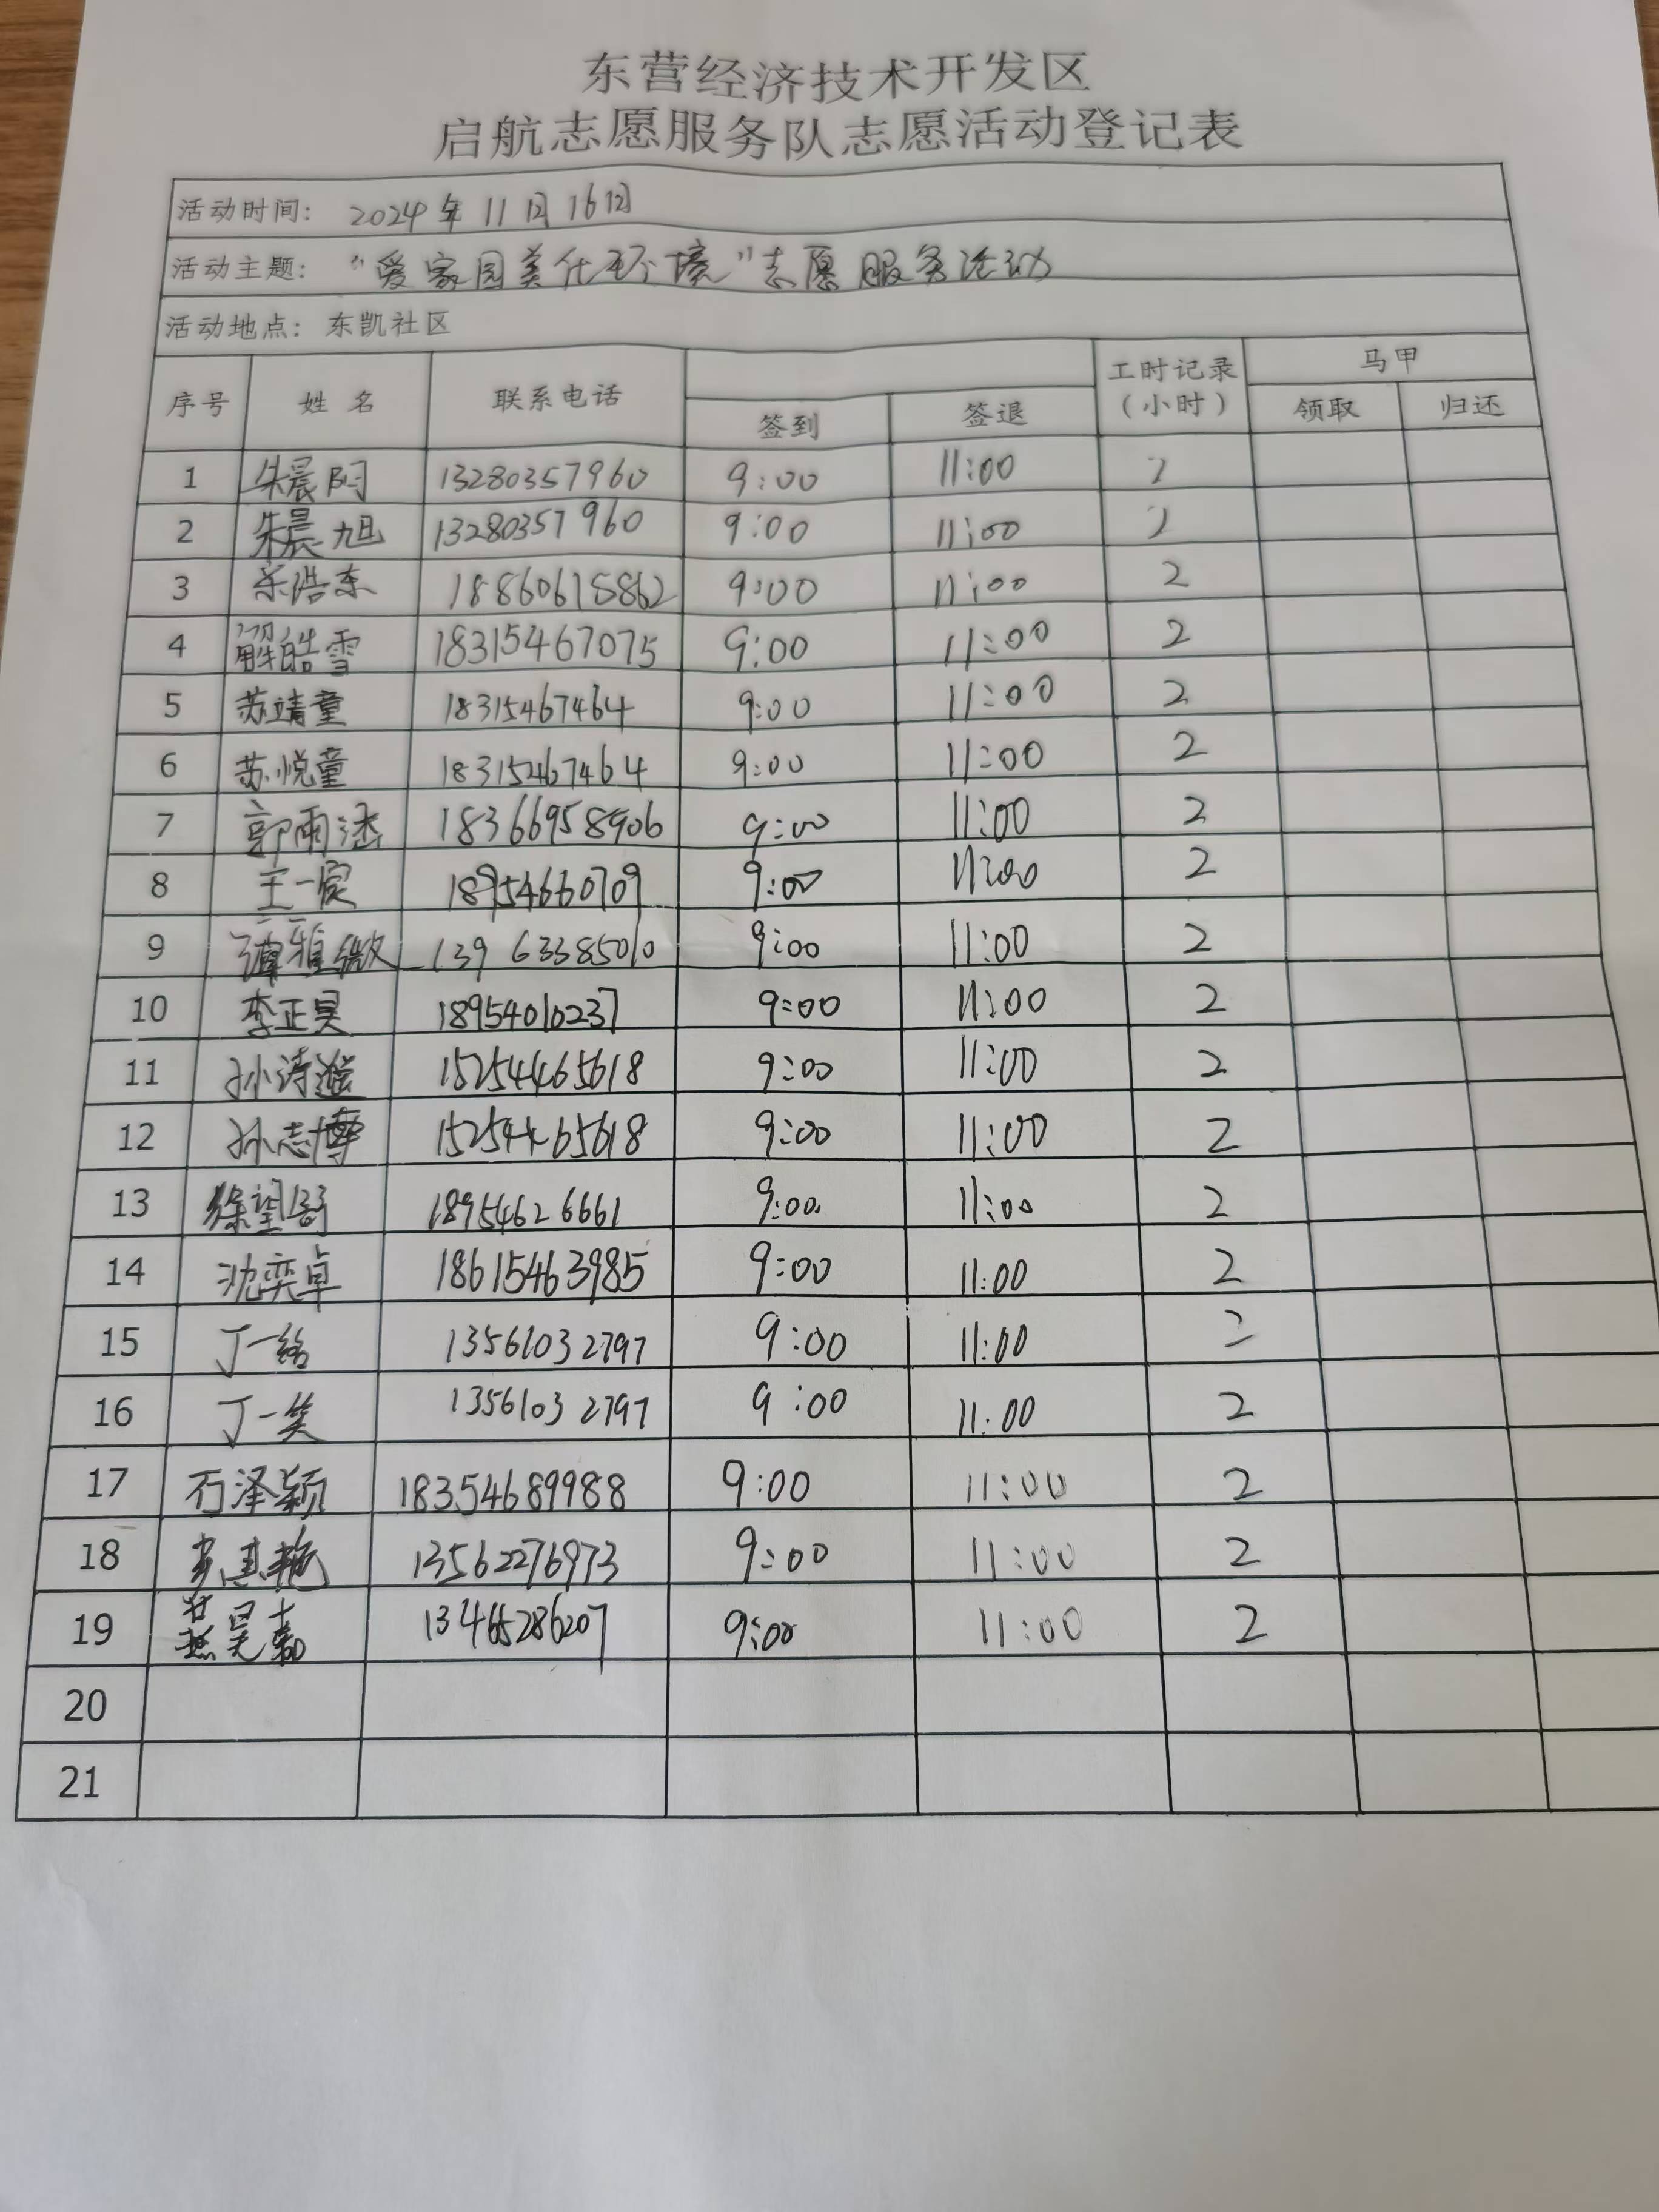 东营经济技术开发区
启航志愿服务队志愿活动登记表
活动时间: 2024年11月16日
活动主题: “爱家园美化环境”志愿服务活动
活动地点: 东凯社区
序号 姓名 联系电话 签到 签退 工时记录(小时) 马甲 领取 归还
1 朱晨阳 13280357960 9:00 11:00 2
2 朱晨旭 13280357960 9:00 11:00 2
3 浩东 18860615862 9:00 11:00 2
4 解皓雪 18315467075 9:00 11:00 2
5 苏靖童 18315467464 9:00 11:00 2
6 苏悦童 18315467464 9:00 11:00 2
7 郭雨涵 18366958906 9:00 11:00 2
8 王一宸 18954660709 9:00 11:00 2
9 谭雅微 13963385010 9:00 11:00 2
10 李正昊 18954010237 9:00 11:00 2
11 孙诗 15254465618 9:00 11:00 2
12 孙志博 15254465618 9:00 11:00 2
13 徐望舒 18954626661 9:00 11:00 2
14 沈奕卓 18615463985 9:00 11:00 2
15 丁一 13561032797 9:00 11:00 2
16 丁一笑 13561032797 9:00 11:00 2
17 石泽颖 18354689988 9:00 11:00 2
18 13562276973 9:00 11:00 2
19 昊嘉 13465286207 9:00 11:00 2
20
21